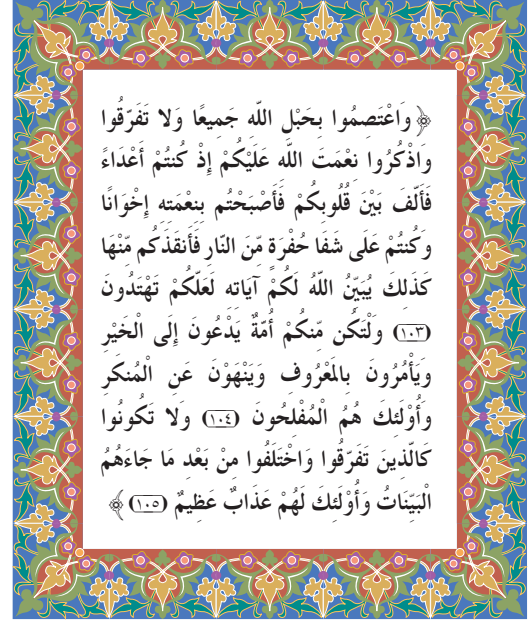 ﴿ وَاعْتَصِمُوا بِحَبْلِ اللَّهِ جَمِيعًا وَلا تَفَرَّقُوا
وَاذْكُرُوا نِعْمَتَ اللَّهِ عَلَيْكُمْ إِذْ كُنتُمْ أَعْدَاءً
فَأَلَّفَ بَيْنَ قُلُوبِكُمْ فَأَصْبَحْتُم بِنِعْمَتِهِ إِخْوَانًا
وَكُنتُمْ عَلَى شَفَا حُفْرَةٍ مِّنَ النَّارِ فَأَنقَذَكُم مِّنْهَا
كَذَلِكَ يُبَيِّنُ اللَّهُ لَكُمْ آيَاتِهِ لَعَلَّكُمْ تَهْتَدُونَ
(١٠٣) وَلْتَكُن مِّنكُمْ أُمَّةٌ يَدْعُونَ إِلَى الْخَيْرِ
وَيَأْمُرُونَ بِالْمَعْرُوفِ وَيَنْهَوْنَ عَنِ الْمُنكَرِ
وَأُوْلَئِكَ هُمُ الْمُفْلِحُونَ (١٠٤) وَلا تَكُونُوا
كَالَّذِينَ تَفَرَّقُوا وَاخْتَلَفُوا مِنْ بَعْدِ مَا جَاءَهُمُ
الْبَيِّنَاتُ وَأُوْلَئِكَ لَهُمْ عَذَابٌ عَظِيمٌ (١٠٥) ﴾